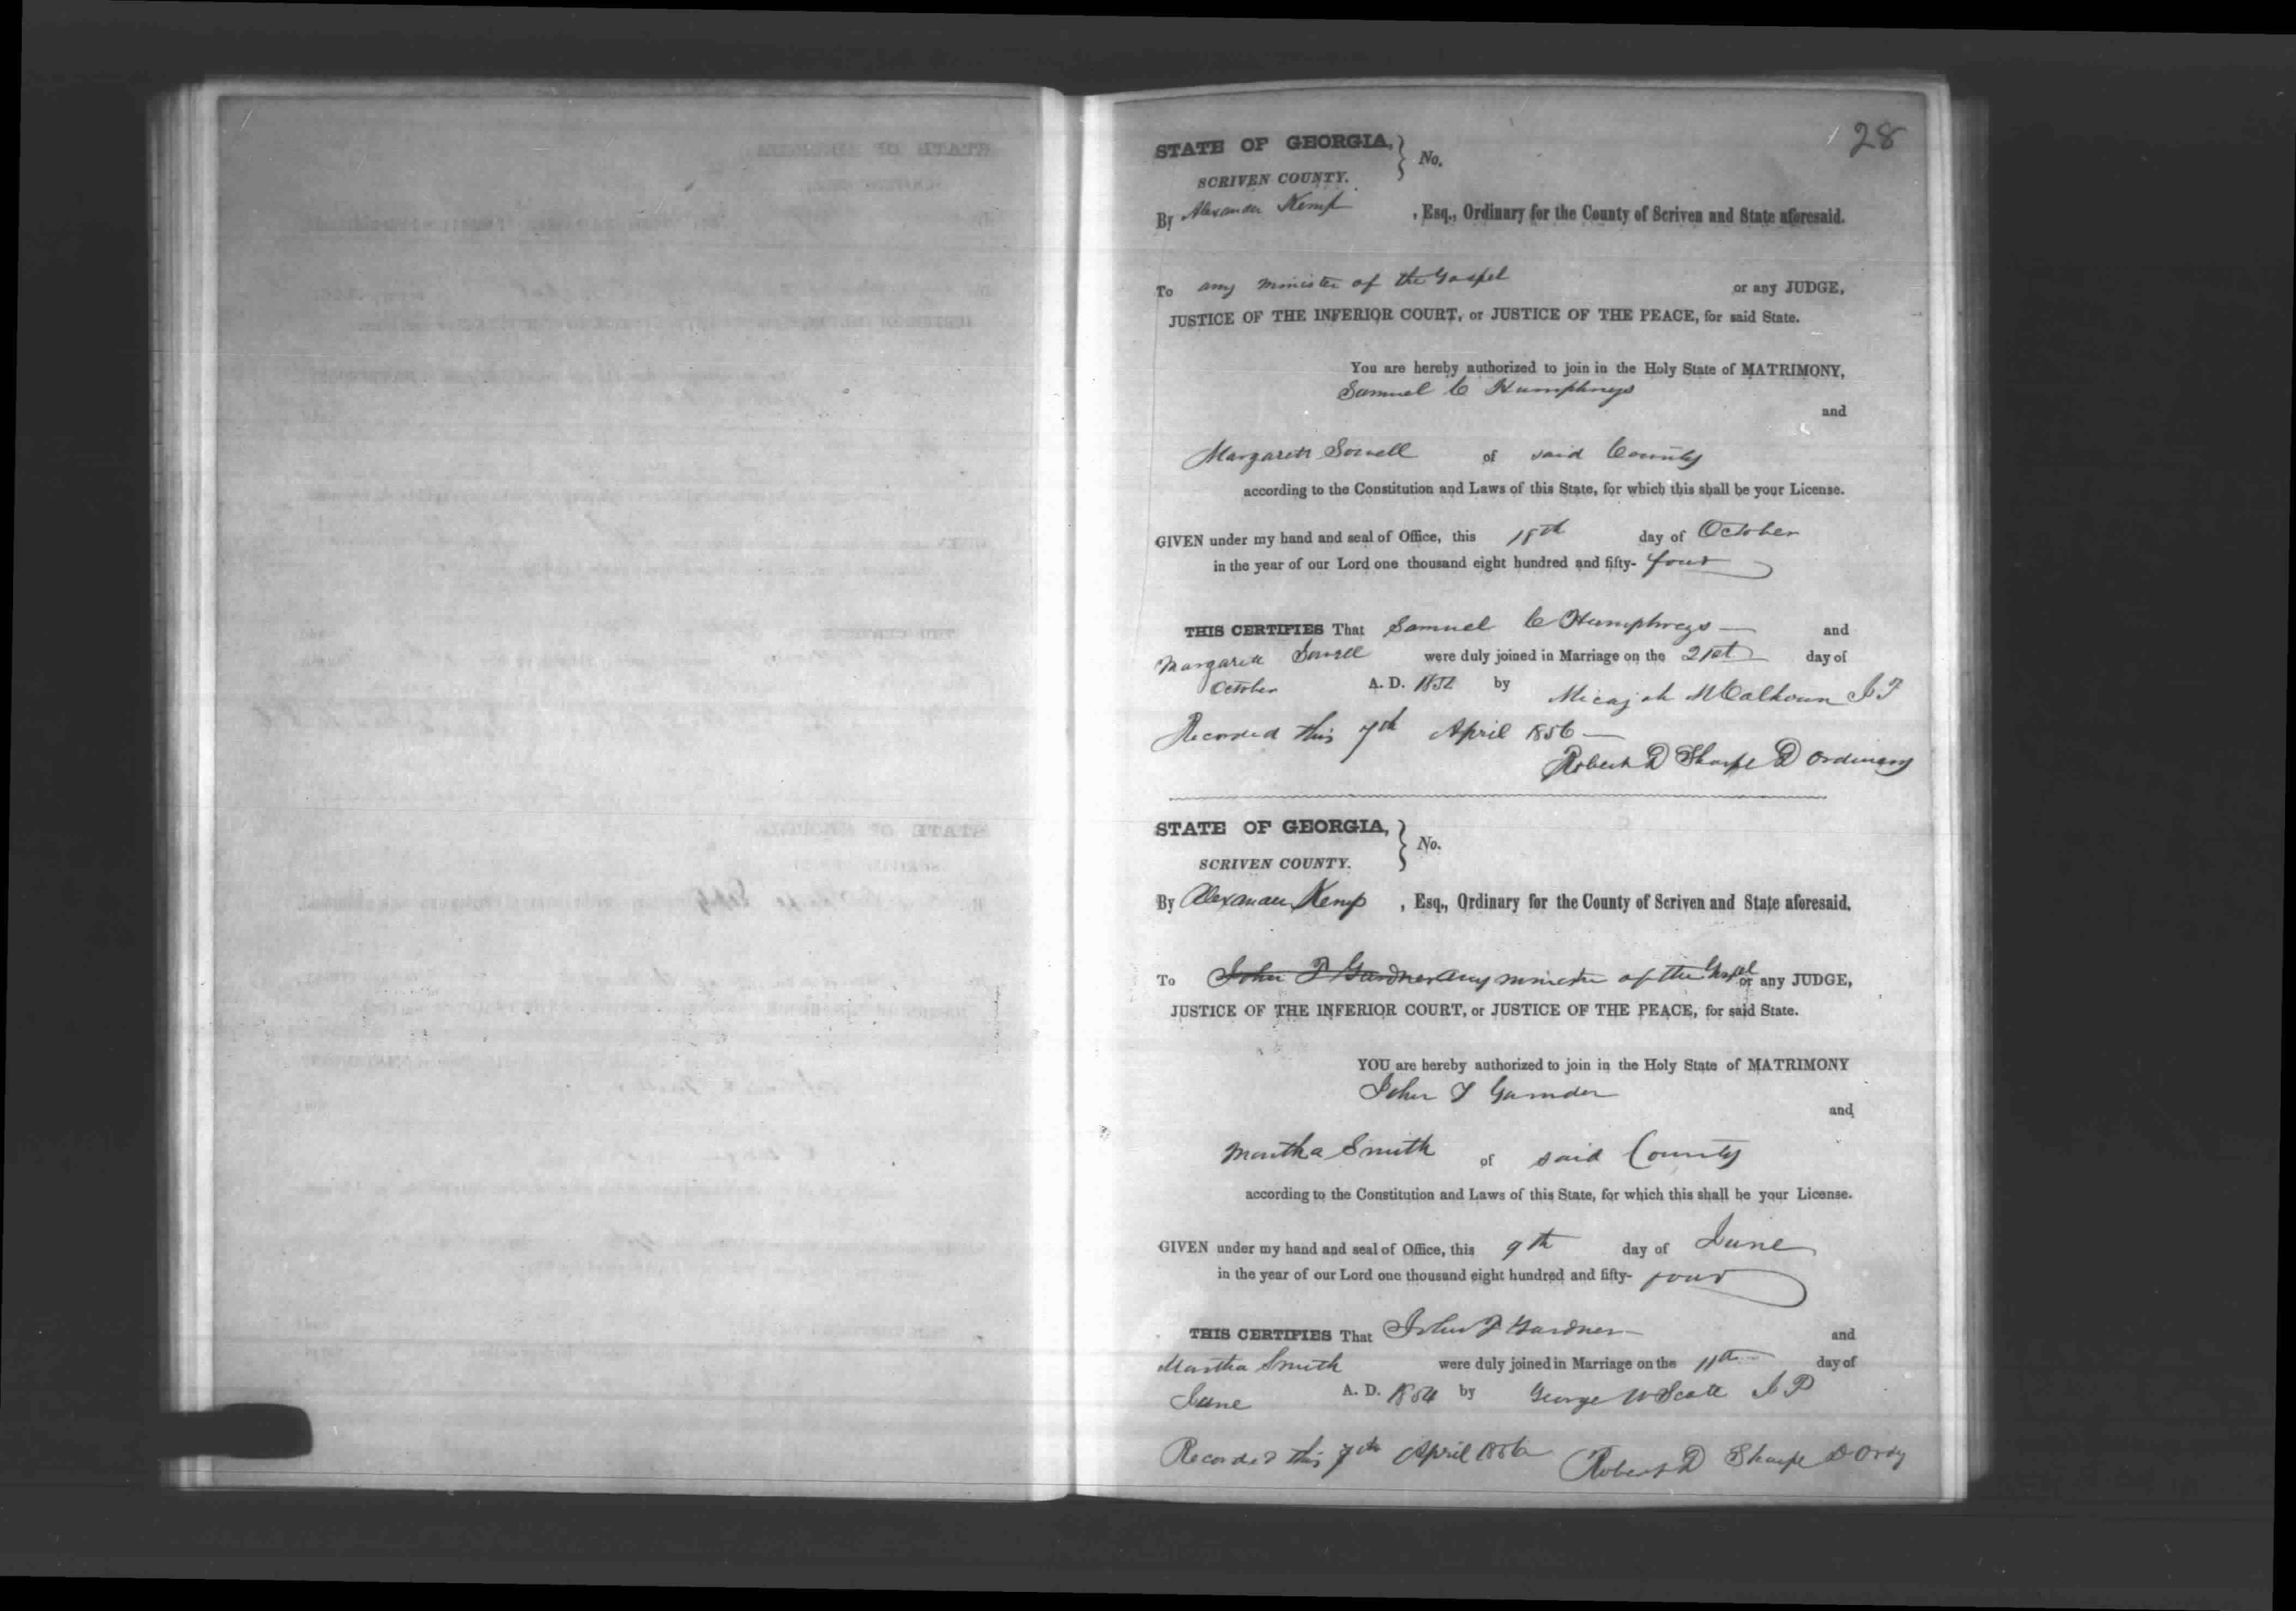 28
STATE OF GEORGIA, } No.
SCRIVEN COUNTY.
By Alexander Kemp , Esq., Ordinary for the County of Scriven and State aforesaid.
To any minister of the Gospel or any JUDGE,
JUSTICE OF THE INFERIOR COURT, or JUSTICE OF THE PEACE, for said State.
You are hereby authorized to join in the Holy State of MATRIMONY,
Samuel C Humphreys
and
Margarett Sowell of said County
according to the Constitution and Laws of this State, for which this shall be your License.
GIVEN under my hand and seal of Office, this 18th day of October
in the year of our Lord one thousand eight hundred and fifty- four
THIS CERTIFIES That Samuel C Humphreys and
Margarett Sowell were duly joined in Marriage on the 21st day of
October A. D. by Micajah McCalhoun J P
Recorded this 7th April 1856
Robert D Sharpe D Ordinary
STATE OF GEORGIA, } No.
SCRIVEN COUNTY.
By Alexander Kemp , Esq., Ordinary for the County of Scriven and State aforesaid.
To John F Gardner any minister of the Gospel or any JUDGE,
JUSTICE OF THE INFERIOR COURT, or JUSTICE OF THE PEACE, for said State.
YOU are hereby authorized to join in the Holy State of MATRIMONY
John F
and
Martha Smith of said County
according to the Constitution and Laws of this State, for which this shall be your License.
GIVEN under my hand and seal of Office, this 9th day of June
in the year of our Lord one thousand eight hundred and fifty- four
THIS CERTIFIES That John F Gardner and
Martha Smith were duly joined in Marriage on the 11th day of
June A. D. 1854 by George W Scott J P
Recorded this 7th April 1856 Robert D Sharpe D Ordy